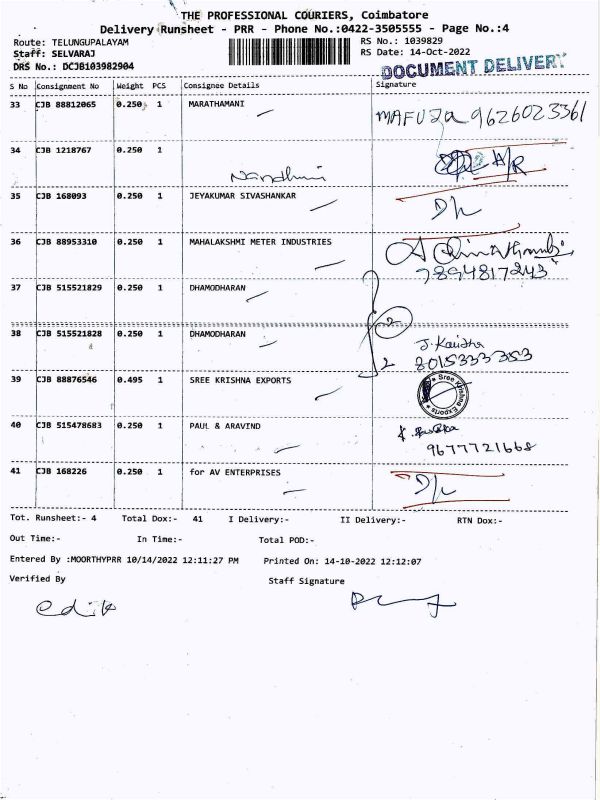 THE PROFESSIONAL COURIERS, Coimbatore
Delivery Runsheet - PRR - Phone No.:0422-3505555 - Page No.:4
Route: TELUNGUPALAYAM RS No.: 1039829
Staff: SELVARAJ RS Date: 14-Oct-2022
DRS No.: DCJB103982904 DOCUMENT DELIVERY
S No Consignment No Weight PCS Consignee Details Signature
33 CJB 88812065 0.250 1 MARATHAMANI
9626023361
34 CJB 1218767 0.250 1
Nandhini
35 CJB 168093 0.250 1 JEYAKUMAR SIVASHANKAR
D/L
36 CJB 88953310 0.250 1 MAHALAKSHMI METER INDUSTRIES
7894817243
37 CJB 515521829 0.250 1 DHAMODHARAN
2
38 CJB 515521828 0.250 1 DHAMODHARAN
8015333353
2
39 CJB 88876546 0.495 1 SREE KRISHNA EXPORTS Sree Krishna Exports
40 CJB 515478683 0.250 1 PAUL & ARAVIND
9677721668
41 CJB 168226 0.250 1 for AV ENTERPRISES D/L
Tot. Runsheet:- 4 Total Dox:- 41 I Delivery:- II Delivery:- RTN Dox:-
Out Time:- In Time:- Total POD:-
Entered By :MOORTHYPRR 10/14/2022 12:11:27 PM Printed On: 14-10-2022 12:12:07
Verified By Staff Signature